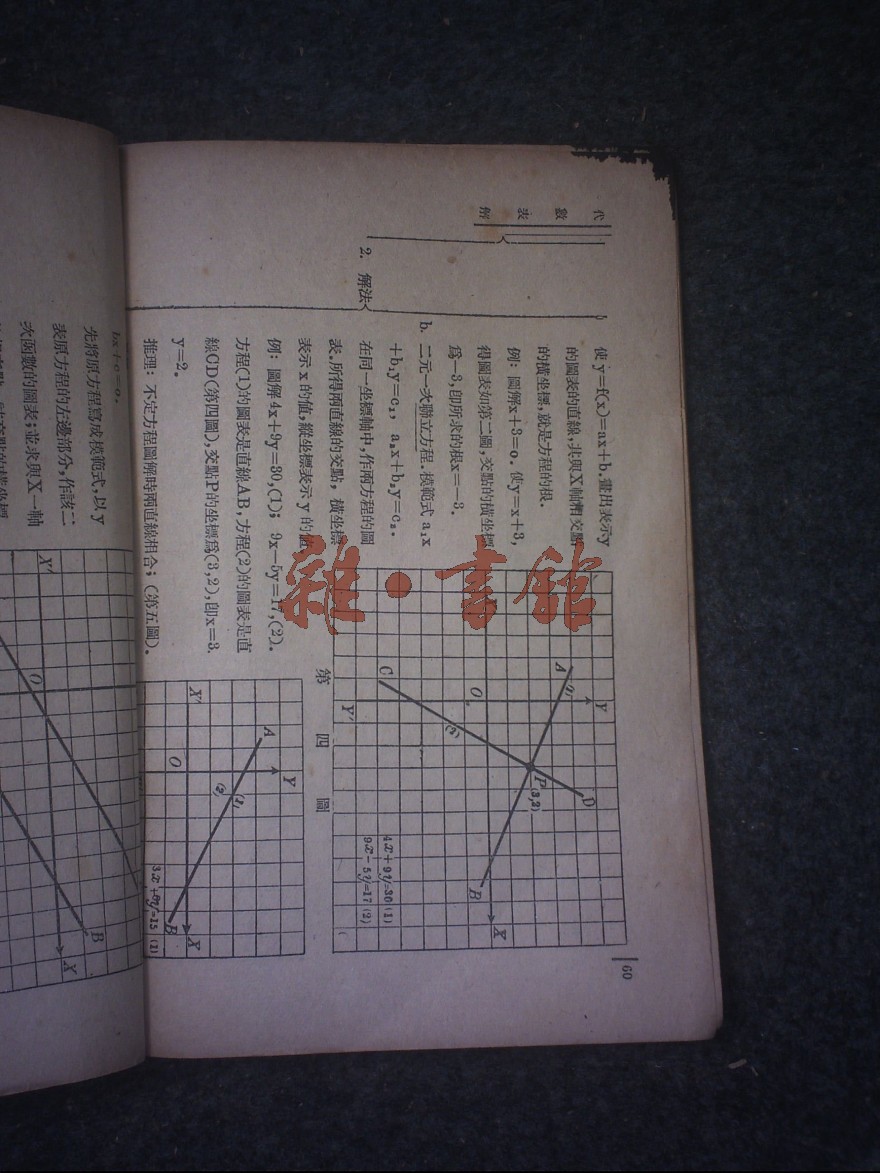 60
代數表解
2. 解法
使 y=f(x)=ax+b. 畫出表示y
的圖表的直線,其與X軸相交點
的橫坐標,就是方程的根.
例: 圖解x+3=o. 使y=x+3,
得圖表如第二圖,交點的橫坐標
爲—3,即所求的根x=—3.
b. 二元一次聯立方程. 模範式 a₁x
+b₁y=c₁, a₂x+b₂y=c₂.
在同一坐標軸中,作兩方程的圖
表.所得兩直線的交點, 橫坐標
表示 x 的值,縱坐標表示 y 的值
例: 圖解 4x+9y=30,(1); 9x—5y=17,(2).
方程(1)的圖表是直線AB, 方程(2)的圖表是直
線CD(第四圖),交點P的坐標爲(3,2),即x=3.
y=2.
推理: 不定方程圖解時兩直線相合; (第五圖).
Y
A
(1)
D
P(3,2)
O
B
X
(2)
C
Y'
4x+9y=30 (1)
9x-5y=17 (2)
第四圖
Y
A
(1)
(2)
X'
O
B
X
bx+c=o.
先將原方程寫成模範式,以 y
表原方程的左邊部分,作該二
次函數的圖表;並求與X—軸
X'
O
B
X
雜·書館